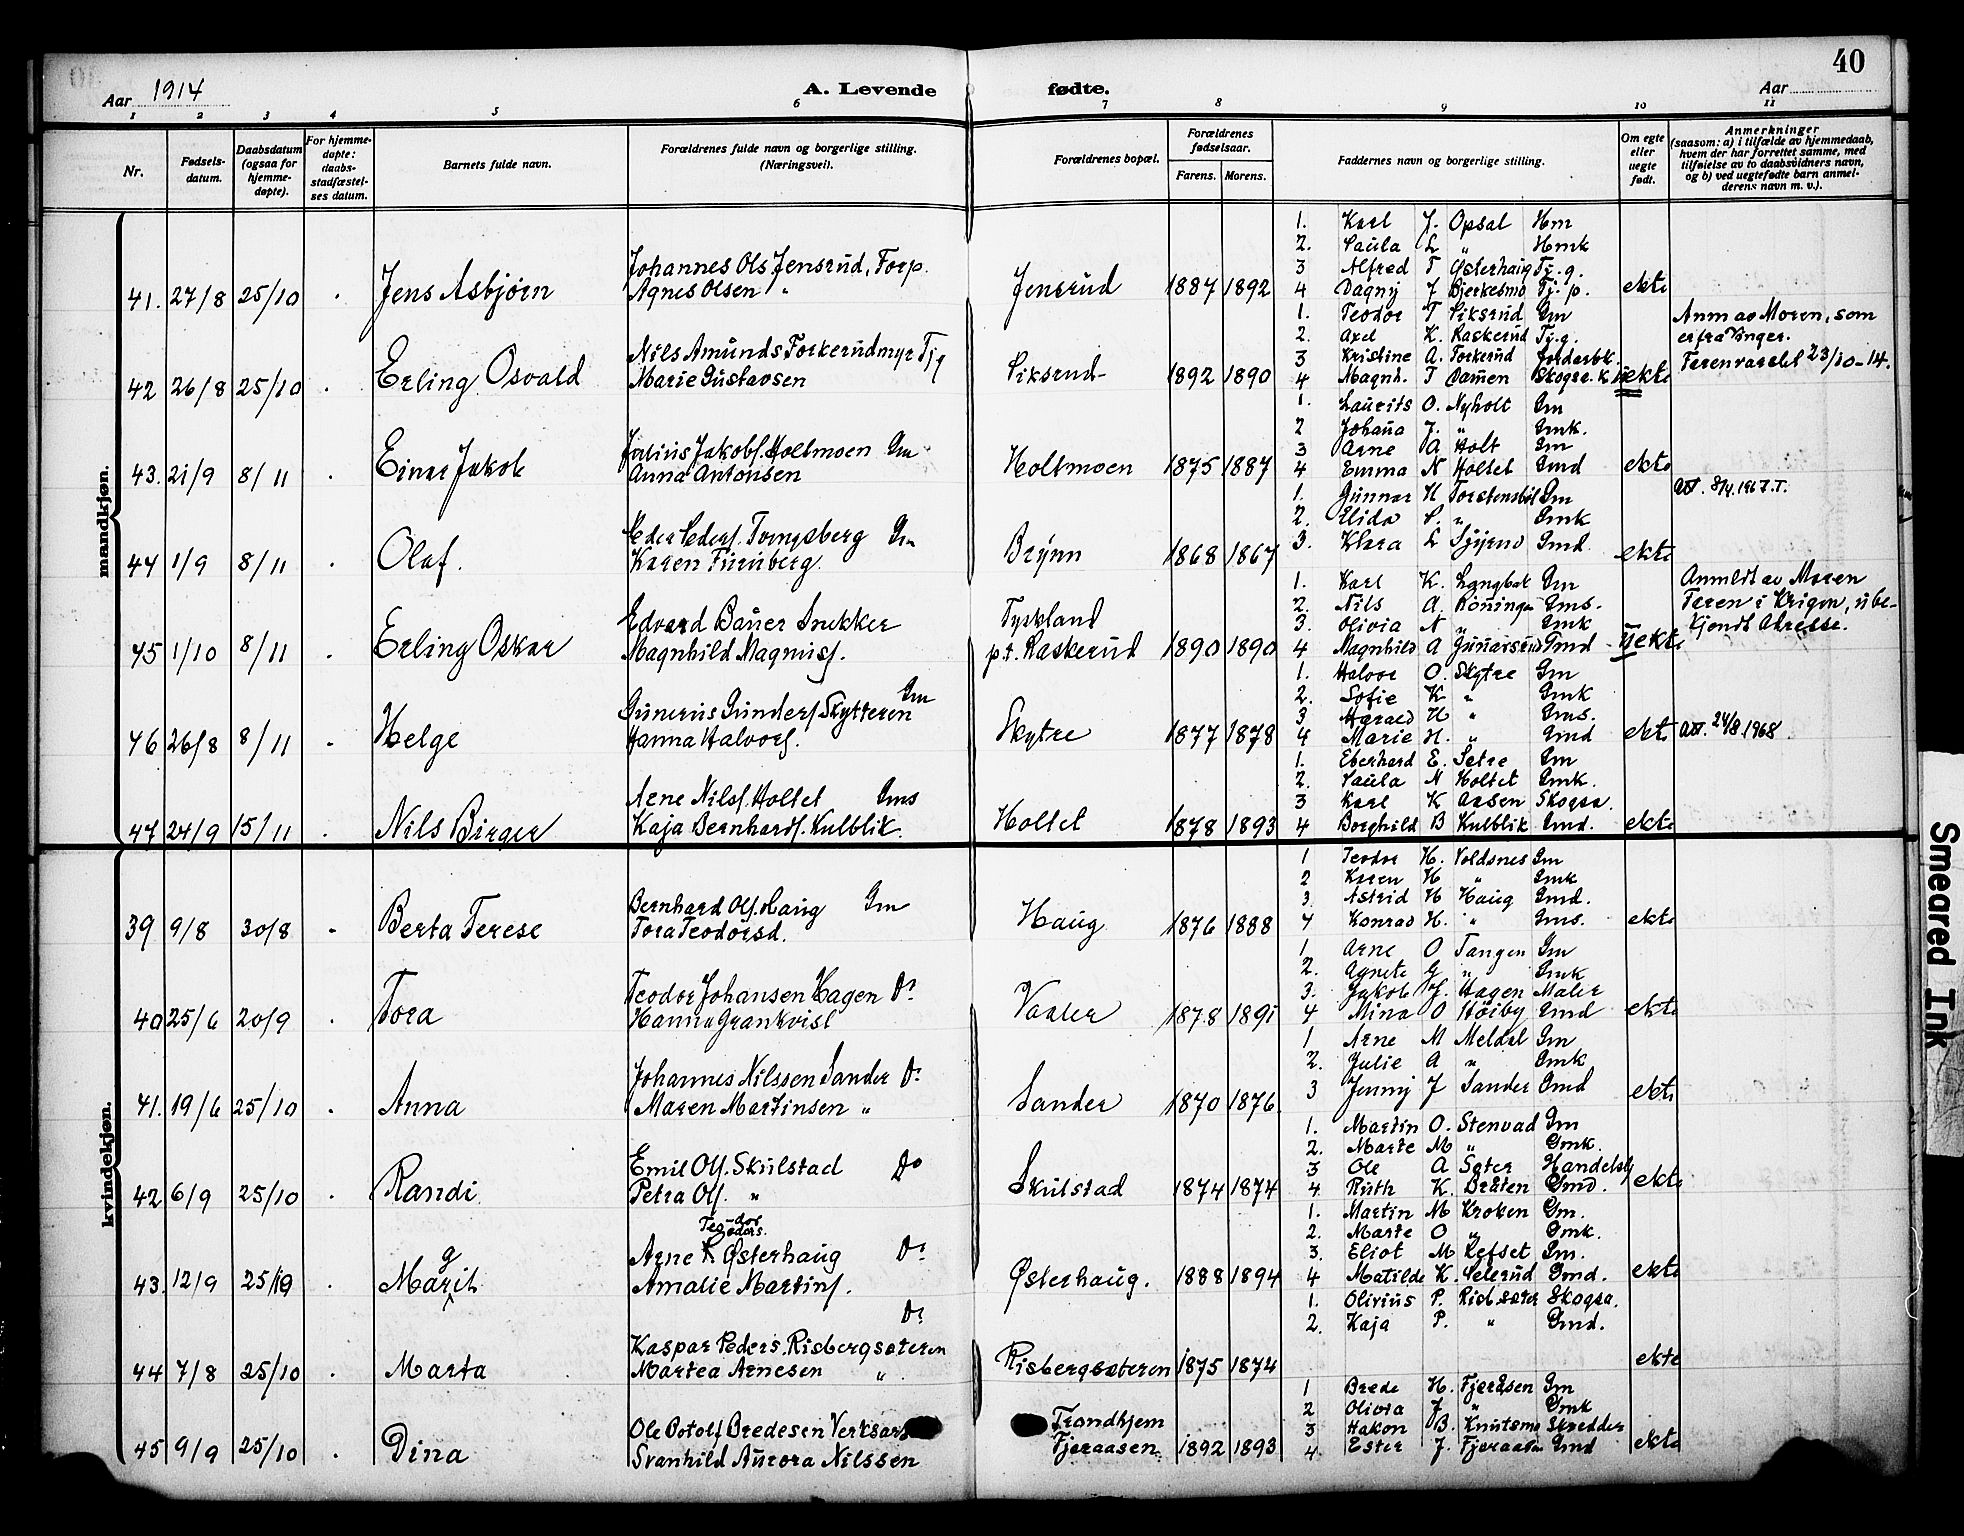 40
Aar 1914
A. Levende fødte.
Aar
1 2 3 4 5 6 7 8 9 10 11
Nr.
Fødsels-
datum.
Daabsdatum
(ogsaa for
hjemme-
døpte).
For hjemme-
døpte:
daabs-
stadfæstel-
ses datum.
Barnets fulde navn.
Forældrenes fulde navn og borgerlige stilling.
(Næringsvei).
Forældrenes bopæl.
Forældrenes
fødselsaar.
Farens. Morens.
Faddernes navn og borgerlige stilling.
Om egte
eller
uegte
født.
Anmerkninger
(saasom: a) i tilfælde av hjemmedaab,
hvem der har forrettet samme, med
tilføielse av to daabsvidners navn,
og b) ved uegtefødte barn anmel-
derens navn m. v.).
mandkjøn.
41. 27/8 25/10 Jens Asbjørn
Johannes Ols. Jensrud, Forp.
Agnes Olsen "
Jensrud 1887 1892
1. Karl J. Opsal Hm
2. Paula L " Hmk
3 Alfred T Østerhaug Tj.g.
4 Dagny J Bjerkesmo Tj.p.
ekte
42 26/8 25/10 Erling Osvald
Nils Amunds Forkerudmyr Tjg
Marie Gustavsen
Siksrud 1892 1890
1. Teodor T Siksrud Gm
2. Axel K. Raskerud Tj.g.
3 Kristine A. Torkerud
4 Magnh. T Damen
uekte
Anm av Moren, som
er fra Vinger.
23/10-14.
43. 21/9 8/11 Einar Jakob
Julius Jakobs. Holtmoen Gm
Anna Antonsen
Holtmoen 1875 1887
1. Laurits O. Nyholt Gm
2 Johana J. " Gmk.
3 Arne A Holt Gm
4 Emma N Holtet Gmd
ekte
44 1/9 8/11 Olaf.
Peder Peders. Tvingsberg Gm
Karen Furuberg.
Brynn 1868 1867
1. Gunnar H Gm
2. Elida P. " Gmk
3. Klara L Gmd.
ekte
45 1/10 8/11 Erling Oskar
Edvard Bauer Snekker
Magnhild Magnuss.
Tyskland
p.t. Raskerud 1890 1890
1. Karl K. Langbak Gm
2. Nils A. Rønningen Gms.
3. Olivia N " Gmk
4 Magnhild A Gunarsrud Gmd
uekte
Anmeldt av Moren
Faren i Krigen, ube-
kjendt Adresse.
46 26/8 8/11 Helge
Gunerius Gunders. Skytteren Gm
Hanna Halvors.
Skytre 1877 1878
1. Halvor O. Skytre Gm
2. Sofie K " Gmk
3. Harald H " Gms.
4 Marie H. " Gmd
ekte 24/8 1968.
47 24/9 15/11 Nils Birger
Arne Nils. Holtet Gms
Kaja Bernhards. Kulblik.
Holtet 1878 1893
1. Eberhard E. Sætre Gm
2. Paula N Holtet Gmk.
3 Karl K Aasen Skogsa.
4 Borghild B Kulblik Gmd.
ekte
kvindekjøn.
39 9/8 30/8 Berta Terese
Bernhard Ols. Haug Gm
Tora Teodorsd.
Haug 1876 1888
1 Teodor H. Voldsnes Gm
2 Karen H " Gmk
3. Astrid H Haug Gmd.
4 Konrad H. " Gms.
ekte
40 25/6 20/9 Tora
Teodor Johansen Hagen Do
Hanna Grankvist
Valer 1878 1891
1 Arne O Tangen Gm
2. Agnete G " Gmk
3. Jakob J. Hagen Maler
4 Mina O Høiby Gmd
ekte
41. 19/6 25/10 Anna
Johannes Nilssen Sander Do
Maren Martinsen "
Sander 1870 1876
1 Arne M Meldal Gm
2. Julie A " Gmk
3 Jenny J Sander Gmd
ekte
42 6/9 25/10 Randi
Emil Ols. Skulstad Do
Petra Ols. "
Skulstad 1874 1874
1. Martin O. Stenvad Gm
2. Marte M " Gmk.
3 Ole A Sæter Handelsb
4. Ruth K. Bråten Gmd.
ekte
43. 12/9 25/10 Margit
Arne Teodors. Østerhaug Do
Amalie Martins.
Østerhaug. 1888 1894
1. Martin M Kroken Gm.
2. Marte O " Gmk.
3. Eliot M Refset Gm.
4 Matilde K. Selerud Gmd.
ekte
44 7/8 25/10 Marta
Do
Kaspar Peders. Risbergsæteren
Martea Arnesen "
Risbergsæteren 1875 1874
1. Olivius P. Risb.sæter Skogsa.
2. Kaja P. " Gmd.
ekte
45 9/9 25/10 Dina
Ole Botolf Bredesen
Svanhild Aurora Nilssen
Trondhjem
Fjæraasen 1892 1893
1 Brede H. Fjeråsen Gm
2 Olivia J " Gmk
3 Hakon B. Knutsmo Skrædder
4. Ester J. Fjæraasen Gmd
ekte
Smeared Ink